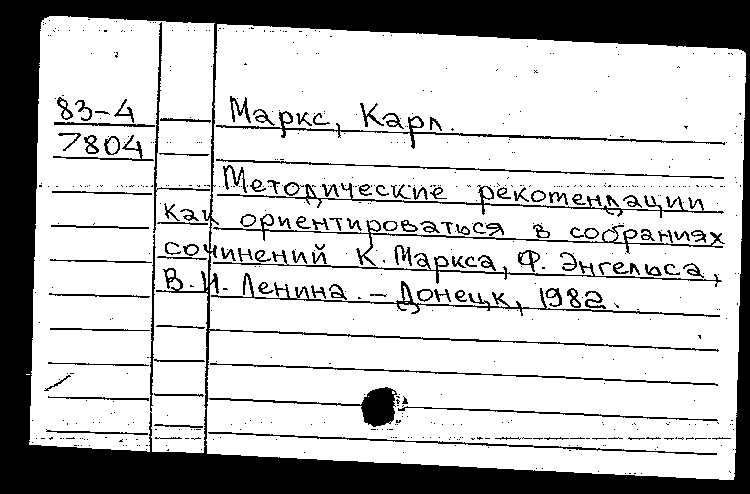 83-4
7804
Маркс, Карл.
Методические рекомендации
как ориентироваться в собраниях
сочинений К. Маркса, Ф. Энгельса,
В.И. Ленина. – Донецк, 1982.